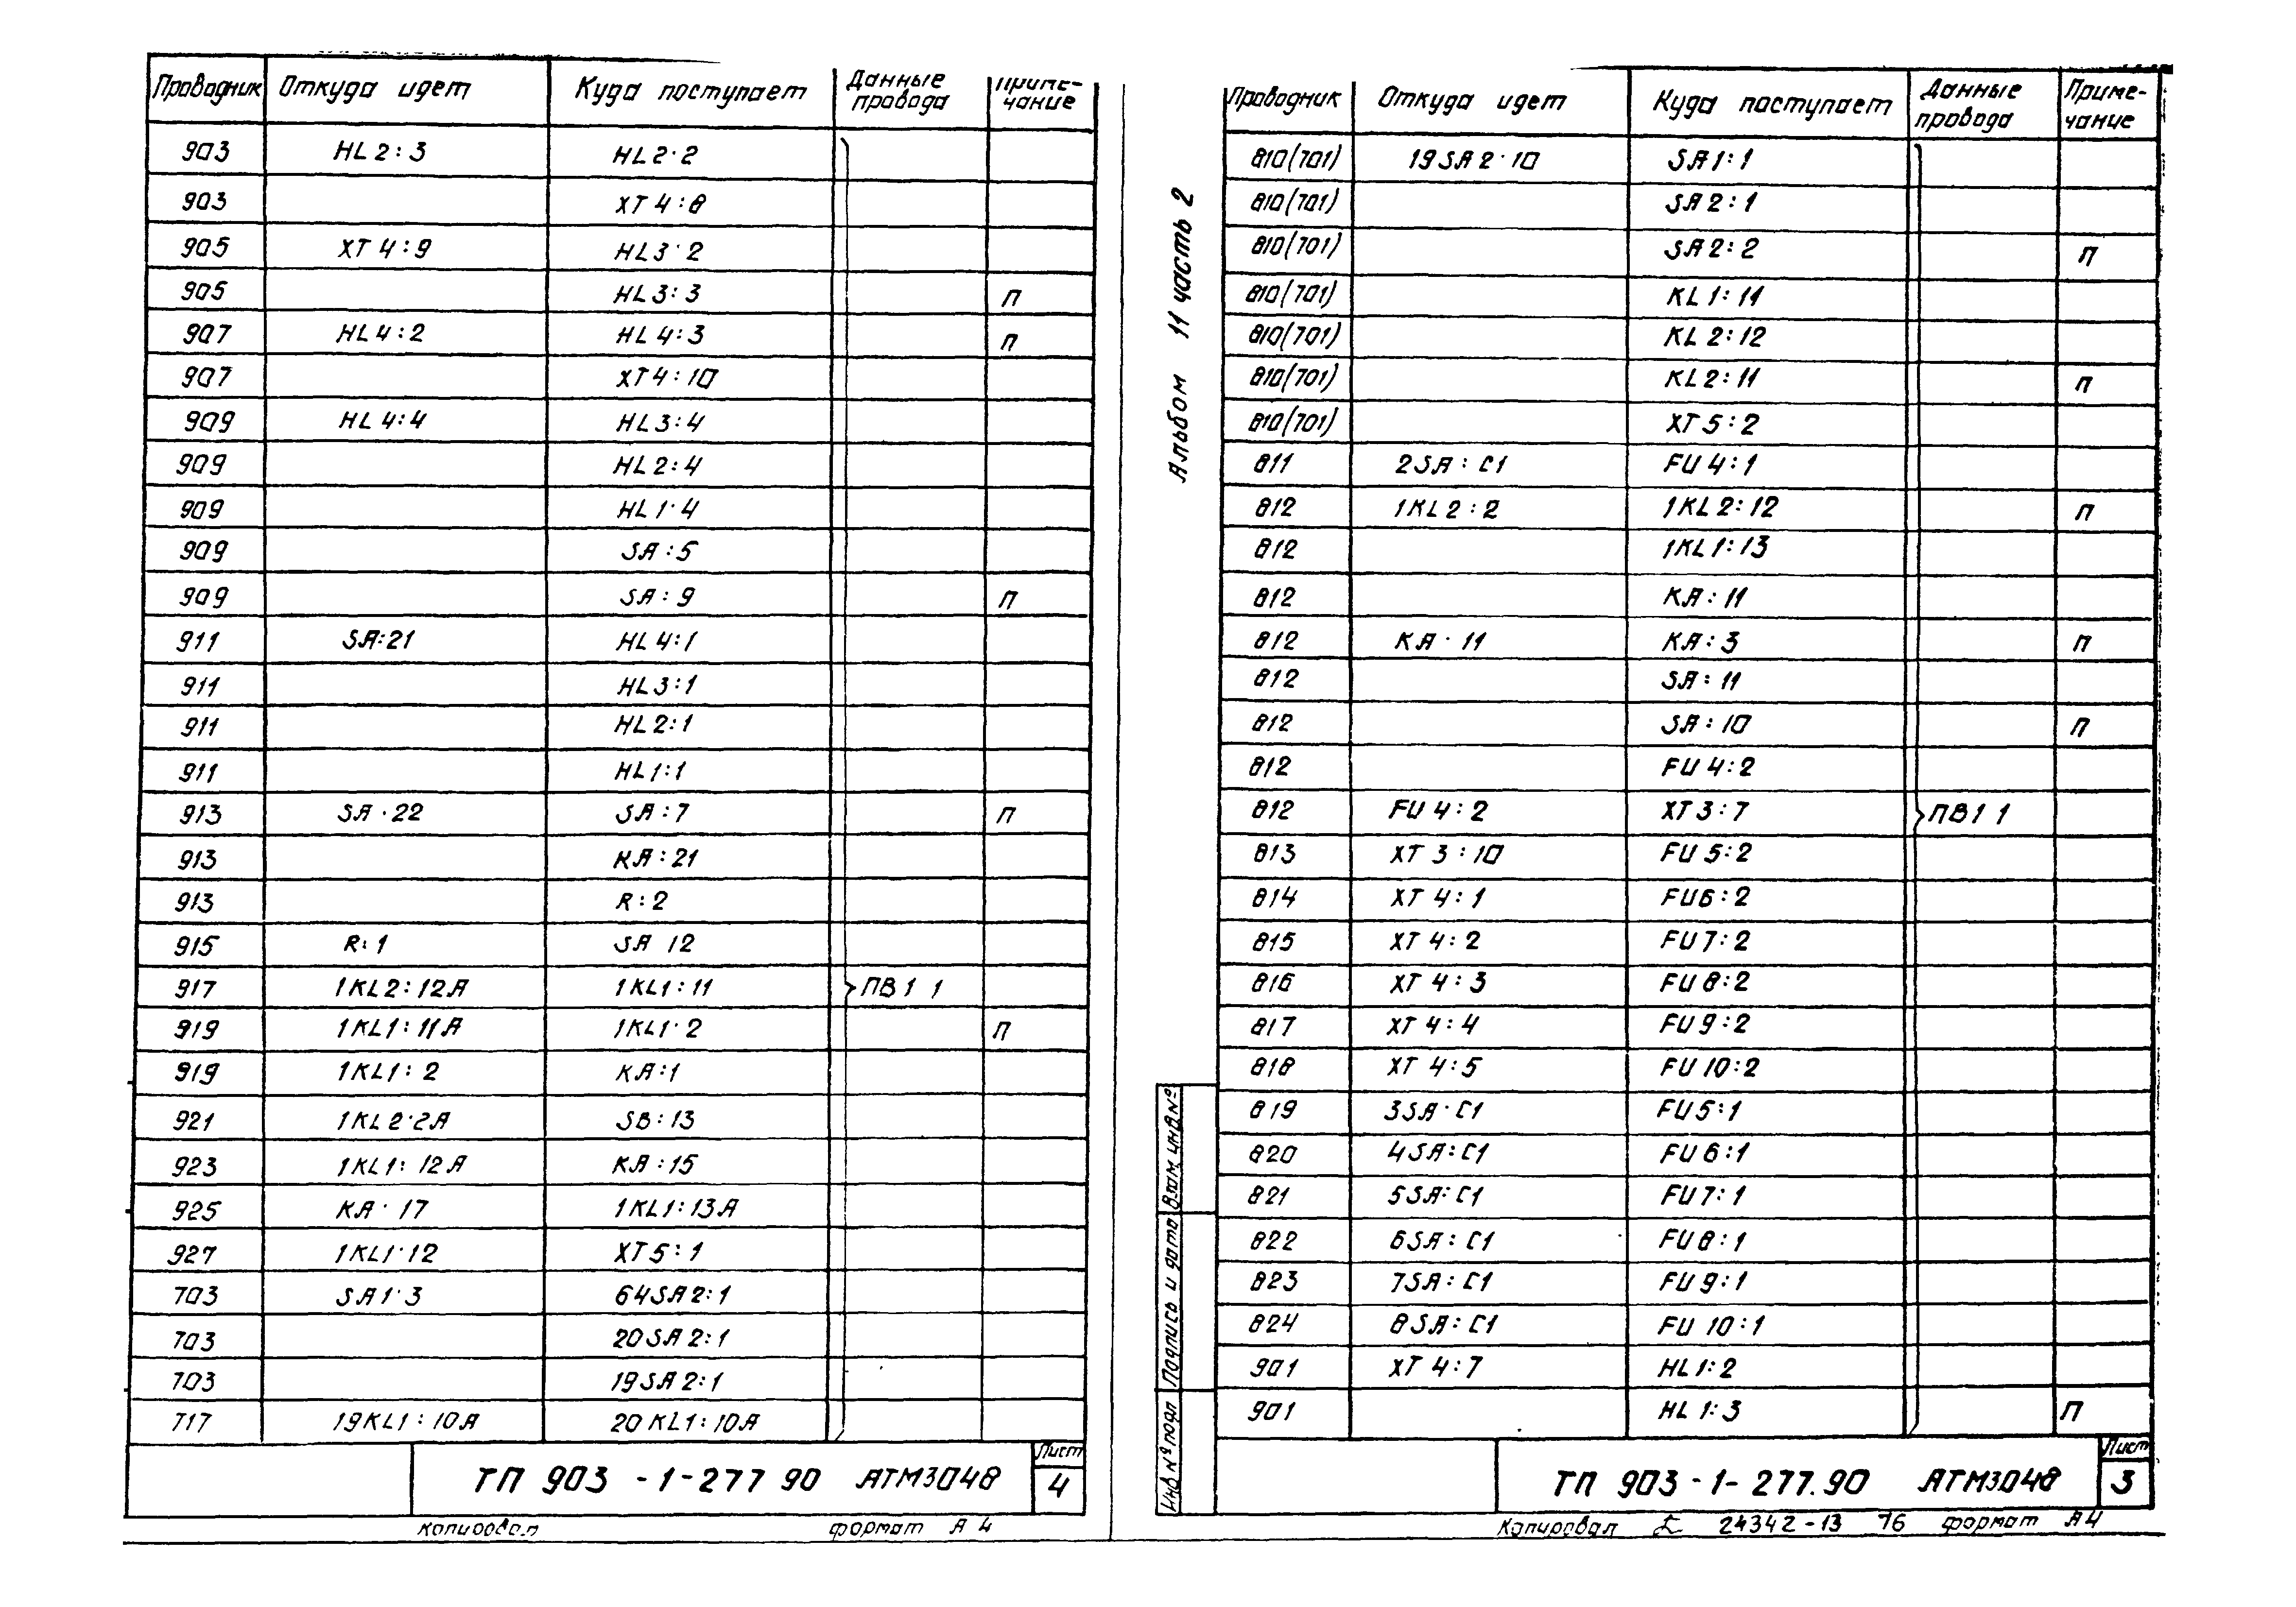 Проводник Откуда идет Куда поступает Данные провода Приме-чание
903 HL2:3 HL2·2
903 XT4:8
905 XT4:9 HL3·2
905 HL3:3 П
907 HL4:2 HL4:3 П
907 XT4:10
909 HL4:4 HL3:4
909 HL2:4
909 HL1·4
909 SA:5
909 SA:9 П
911 SA:21 HL4:1
911 HL3:1
911 HL2:1
911 HL1:1
913 SA·22 SA:7 П
913 KA:21
913 R:2
915 R:1 SA 12
917 1KL2:12A 1KL1:11 ПВ1 1
919 1KL1:11A 1KL1·2 П
919 1KL1:2 KA:1
921 1KL2·2A SB:13
923 1KL1:12A KA:15
925 KA·17 1KL1:13A
927 1KL1·12 XT5:1
703 SA1·3 64SA2:1
703 20SA2:1
703 19SA2:1
717 19KL1:10A 20KL1:10A
ТП 903-1-277 90 АТМ3048
Лист
4
Копировал формат А4
Альбом 11 часть 2
Проводник Откуда идет Куда поступает Данные провода Приме-чание
810(701) 19SA2·10 SA1:1
810(701) SA2:1
810(701) SA2:2 П
810(701) KL1:11
810(701) KL2:12
810(701) KL2:11 П
810(701) XT5:2
811 2SA:C1 FU4:1
812 1KL2:2 1KL2:12 П
812 1KL1:13
812 KA:11
812 KA·11 KA:3 П
812 SA:11
812 SA:10 П
812 FU4:2
812 FU4:2 XT3:7 ПВ1 1
813 XT3:10 FU5:2
814 XT4:1 FU6:2
815 XT4:2 FU7:2
816 XT4:3 FU8:2
817 XT4:4 FU9:2
818 XT4:5 FU10:2
819 3SA·C1 FU5:1
820 4SA:C1 FU6:1
821 5SA:C1 FU7:1
822 6SA:C1 FU8:1
823 7SA:C1 FU9:1
824 8SA:C1 FU10:1
901 XT4:7 HL1:2
901 HL1:3 П
Взам. инв №
Подпись и дата
Инв № подл
ТП 903-1-277.90 АТМ3.048
Лист
3
Копировал 24342-13 76 формат А4